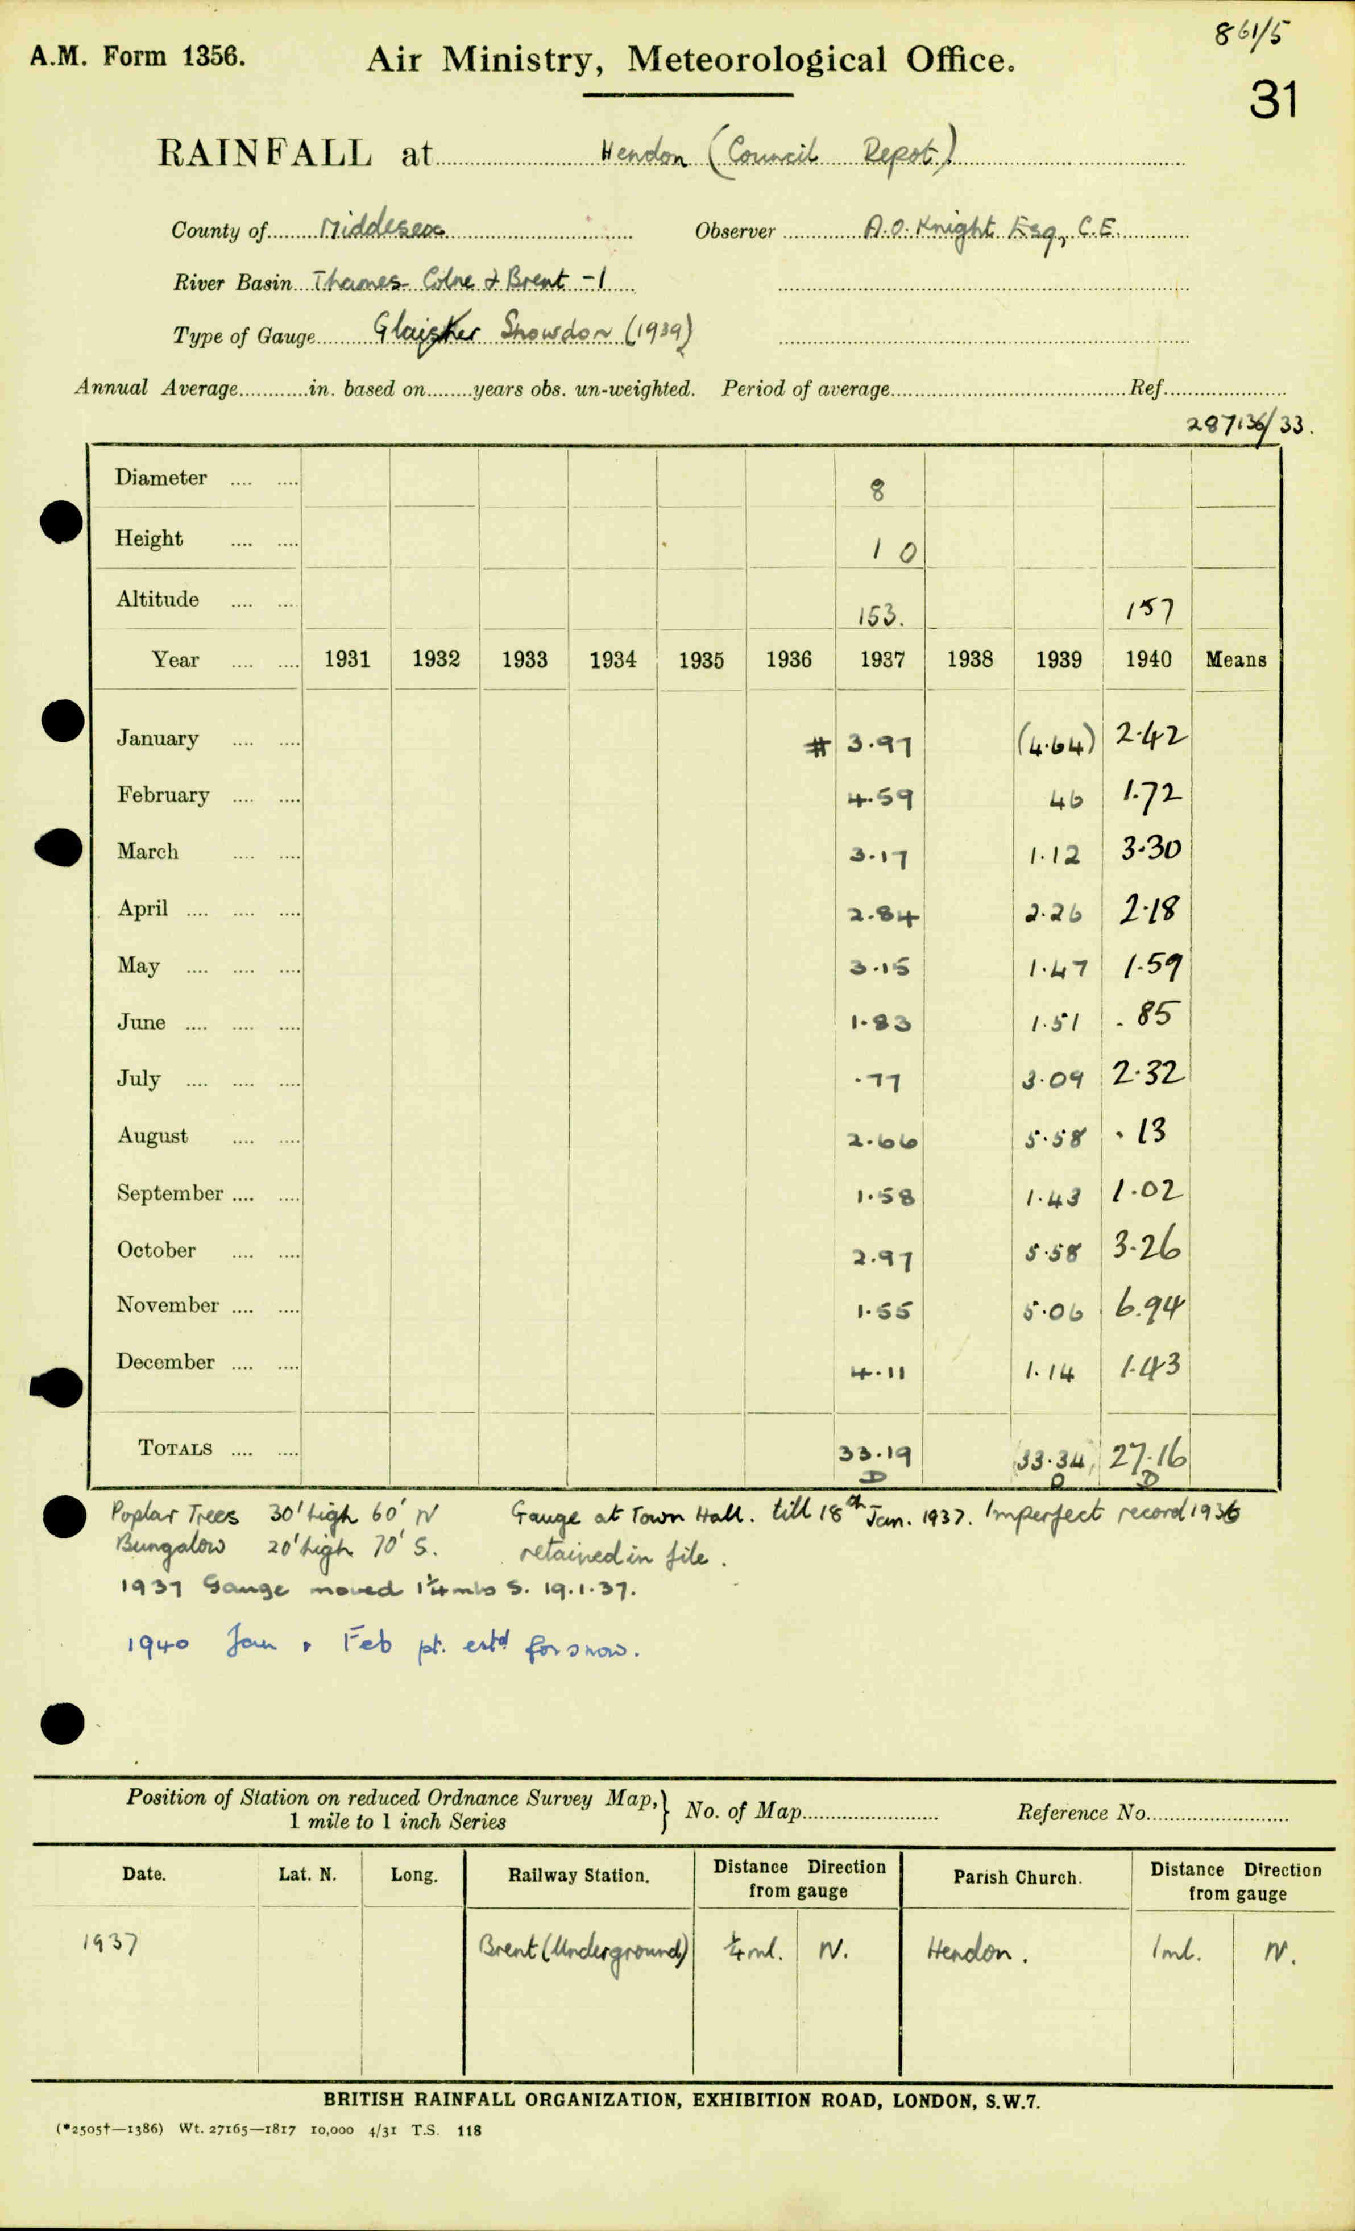 861/5
A.M. Form 1356. Air Ministry, Meteorological Office.
31
RAINFALL at Hendon (Council Depot)
County of Middlesex Observer A.O. Knight Esq, C.E.
River Basin Thames- Colne & Brent -1
Type of Gauge Glaisher Snowdon (1939)
Annual Average............in. based on........years obs. un-weighted. Period of average.............Ref.............
287136/33.
Diameter .... .... 8
Height .... .... 1 0
Altitude .... .... 153. 157
Year .... .... 1931 1932 1933 1934 1935 1936 1937 1938 1939 1940 Means
January .... .... # 3.97 (4.64) 2.42
February .... .... 4.59 46 1.72
March .... .... 3.17 1.12 3.30
April .... .... .... 2.84 2.26 2.18
May .... .... .... 3.15 1.47 1.59
June .... .... .... 1.83 1.51 .85
July .... .... .... .77 3.09 2.32
August .... .... 2.66 5.58 .13
September .... .... 1.58 1.43 1.02
October .... .... 2.97 5.58 3.26
November .... .... 1.55 5.06 6.94
December .... .... 4.11 1.14 1.43
TOTALS .... .... 33.19 (33.34) 27.16
D D D
Poplar Trees 30' high 60' N Gauge at Town Hall. till 18th Jan. 1937. Imperfect record 1936
Bungalow 20' high 70' S. retained in file.
1937 Gauge moved 1¼ mls S. 19.1.37.
1940 Jan & Feb pt. estd for snow.
Position of Station on reduced Ordnance Survey Map,} No. of Map............ Reference No............
1 mile to 1 inch Series
Date. Lat. N. Long. Railway Station. Distance Direction from gauge Parish Church. Distance Direction from gauge
1937 Brent (Underground) ¼ ml. N. Hendon. 1 ml. N.
BRITISH RAINFALL ORGANIZATION, EXHIBITION ROAD, LONDON, S.W.7.
(*2505†—1386) Wt. 27165—1817 10,000 4/31 T.S. 118